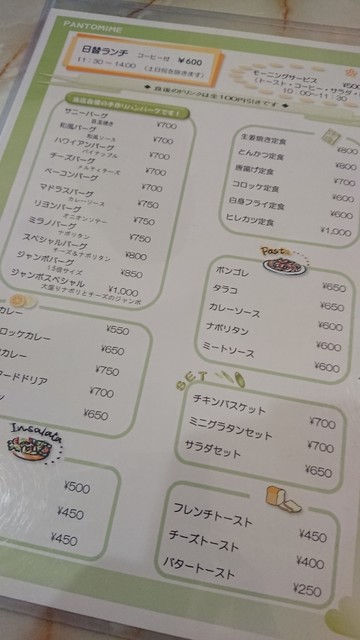 PANTOMIME
日替ランチ コーヒー付 ¥600
11:30~14:00 (土日祝を除きます)
モーニングサービス ¥500
(トースト・コーヒー・サラダ・
10:00~11:30
◆食後のドリンクは全100円引きです◆
当店自慢の手作りハンバーグです!
サニーバーグ ¥700
目玉焼き
和風バーグ ¥700
和風ソース
ハワイアンバーグ ¥700
パイナップル
チーズバーグ ¥700
メルティチーズ
ベーコンバーグ ¥700
マドラスバーグ ¥750
カレーソース
リヨンバーグ ¥750
オニオンソテー
ミラノバーグ ¥750
ナポリタン
スペシャルバーグ ¥800
チーズ&ナポリタン
ジャンボバーグ ¥850
1.5倍サイズ
ジャンボスペシャル ¥1,000
大盛りナポリとチーズのジャンボ
生姜焼き定食 ¥800
とんかつ定食 ¥800
唐揚げ定食 ¥700
コロッケ定食 ¥700
白身フライ定食 ¥700
ヒレカツ定食 ¥1,000
Pasta
ボンゴレ ¥650
タラコ ¥650
カレーソース ¥600
ナポリタン ¥600
ミートソース ¥600
カレー ¥550
ロッケカレー ¥650
カレー ¥750
ードドリア ¥700
¥650
SET
チキンバスケット ¥700
ミニグラタンセット ¥700
サラダセット ¥650
Insalata
¥500
¥450
¥450
フレンチトースト ¥450
チーズトースト ¥400
バタートースト ¥250